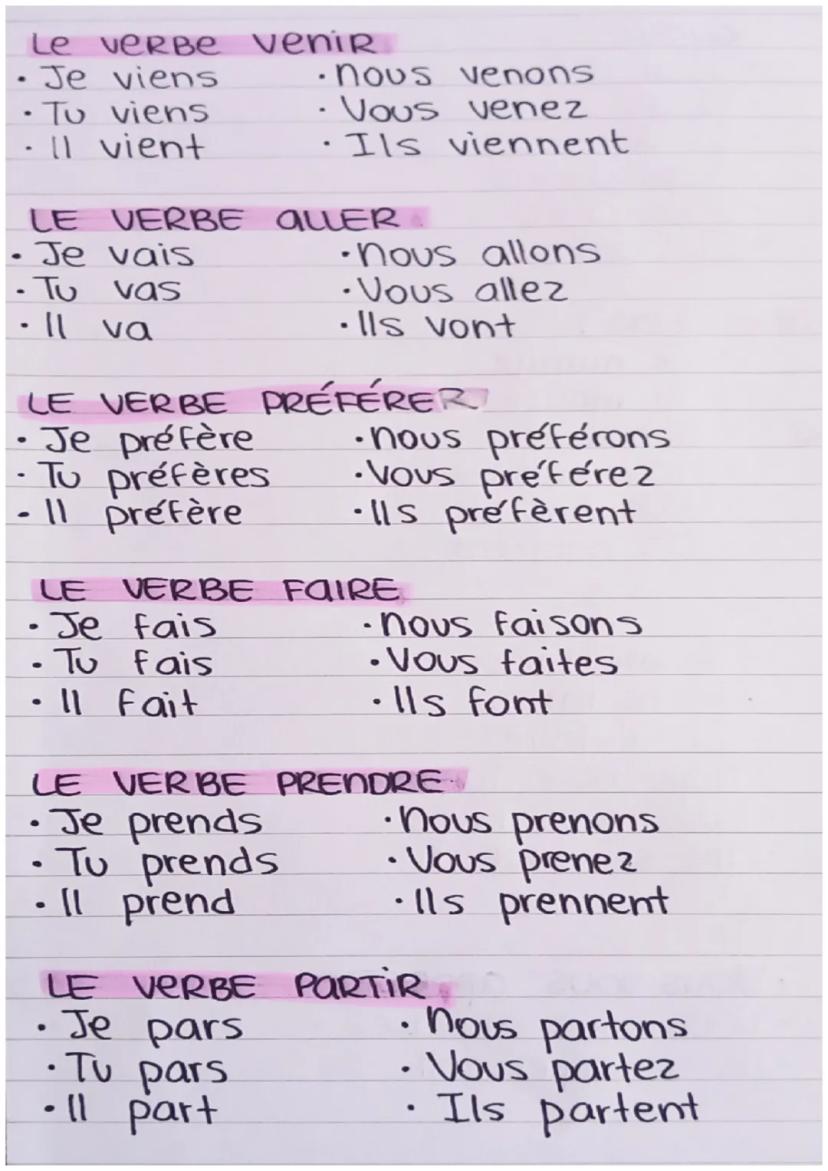 Le verbe venir
· Je viens · Nous venons
· Tu viens · Vous venez
· Il vient · Ils viennent
LE VERBE ALLER
· Je vais · Nous allons
· Tu vas · Vous allez
· Il va · Ils vont
LE VERBE PRÉFÉRER
· Je préfère · Nous préférons
· Tu préfères · Vous préférez
· Il préfère · Ils préfèrent
LE VERBE FAIRE
· Je fais · Nous faisons
· Tu fais · Vous faites
· Il fait · Ils font
LE VERBE PRENDRE
· Je prends · Nous prenons
· Tu prends · Vous prenez
· Il prend · Ils prennent
LE VERBE PARTIR
· Je pars · Nous partons
· Tu pars · Vous partez
· Il part · Ils partent